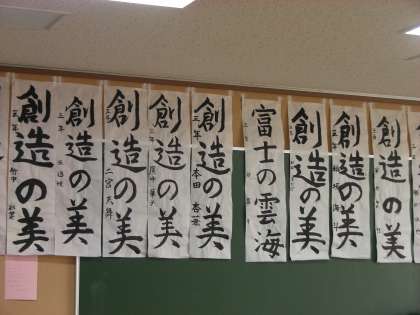 創造の美
三年
創造の美
三年
創造の美
二宮
創造の美
創造の美
三年 本田
富士の雲海
創造の美
創造の美
創造の美